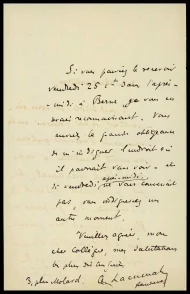 Si vous pouviez le recevoir
vendredi 25 ct dans l'après-
midi à Berne, je vous en
serais reconnaissant. Vous
auriez la grande obligeance
de m'indiquer l'endroit où
il pourrait vous voir - et
si vendredi après-midi ne vous convenait
pas, vous indiqueriez un
autre moment.
Veuillez agréer, mon
cher Collègue, mes salutations
les plus distinguées.
3, place Molard.